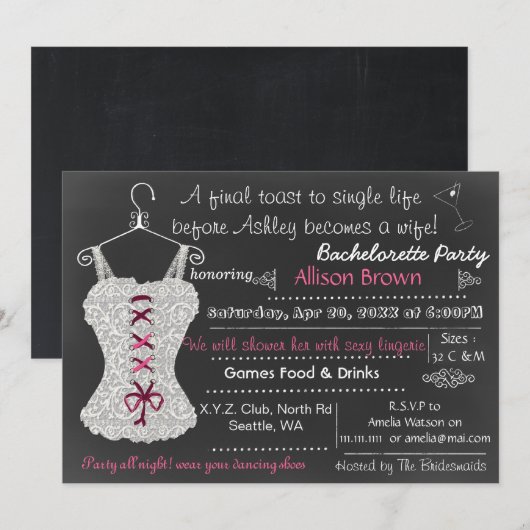 A final toast to single life
before Ashley becomes a wife!
Bachelorette Party
honoring
Allison Brown
Saturday, Apr 20, 20XX at 6:00PM
We will shower her with sexy lingerie
Sizes :
32 C & M
Games Food & Drinks
X.Y.Z. Club, North Rd
Seattle, WA
R.S.V.P to
Amelia Watson on
111.111.1111 or amelia@mai.com
Party all night! wear your dancing shoes
Hosted by The Bridesmaids